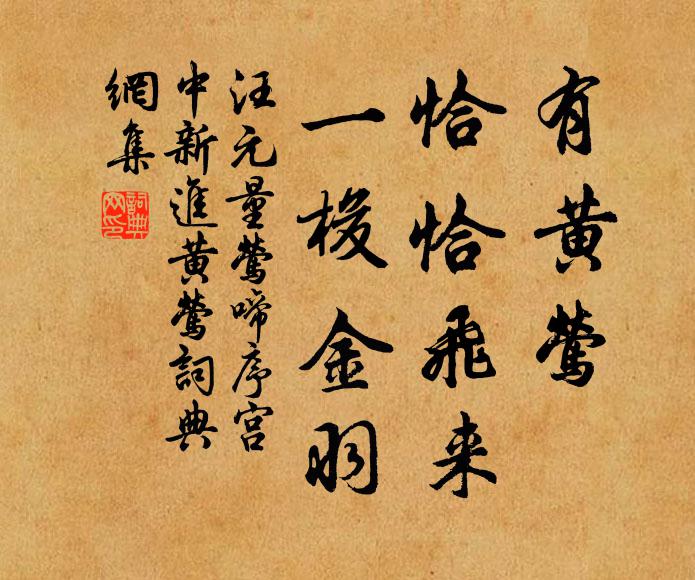 有黄莺
恰恰飛来
一梭金羽
汪元量鶯啼序宫
中新進黄鶯詞典
網集
詞典
网印